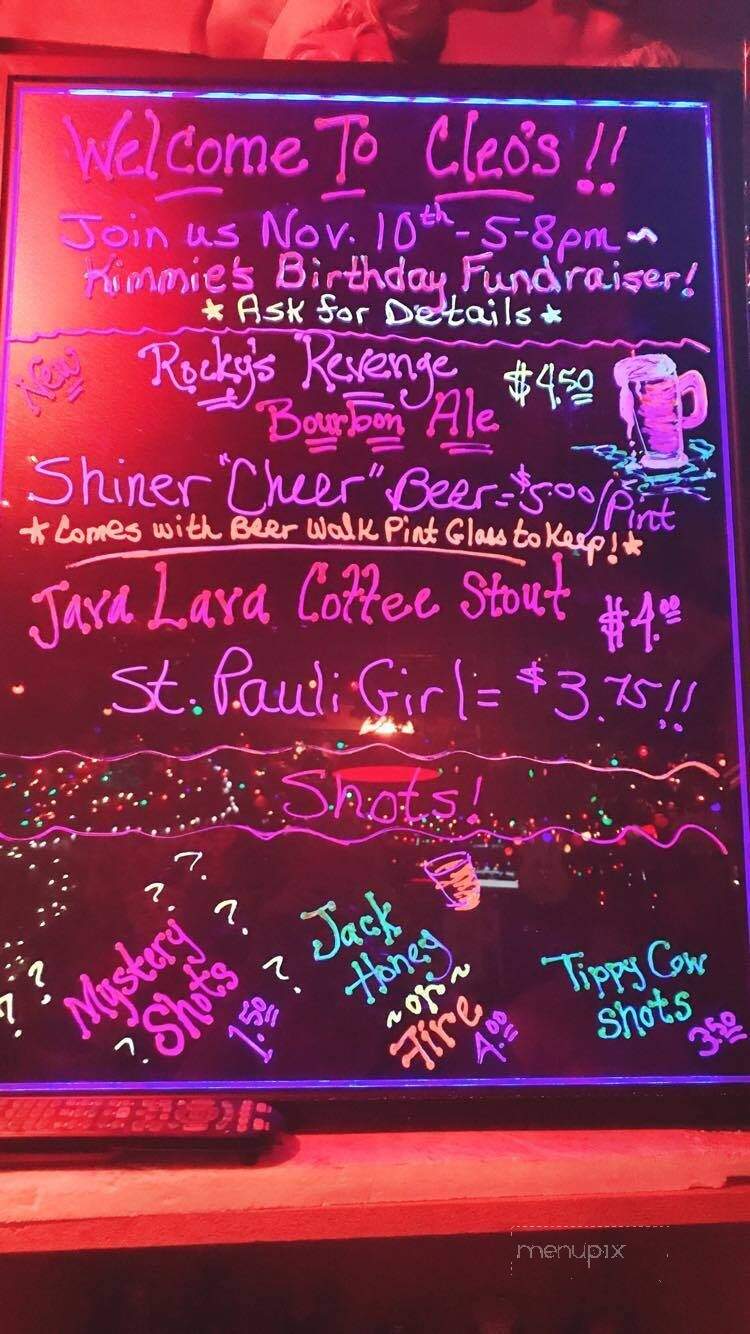 Welcome To Cleo's!!
Join us Nov. 10th - 5-8pm ~
Kimmie's Birthday Fundraiser!
* Ask for Details *
New Rocky's Revenge $4.50
Bourbon Ale
Shiner "Cheer" Beer = $5.00/Pint
* Comes with Beer Walk Pint Glass to Keep! *
Java Lava Coffee Stout $4.00
St. Pauli Girl = $3.75!!
Shots!
? ? ? ? ? ? ?
Mystery
Shots
1.50!!
Jack
Honey
~or~
Fire
4.00
Tippy Cow
Shots
3.50
menupix